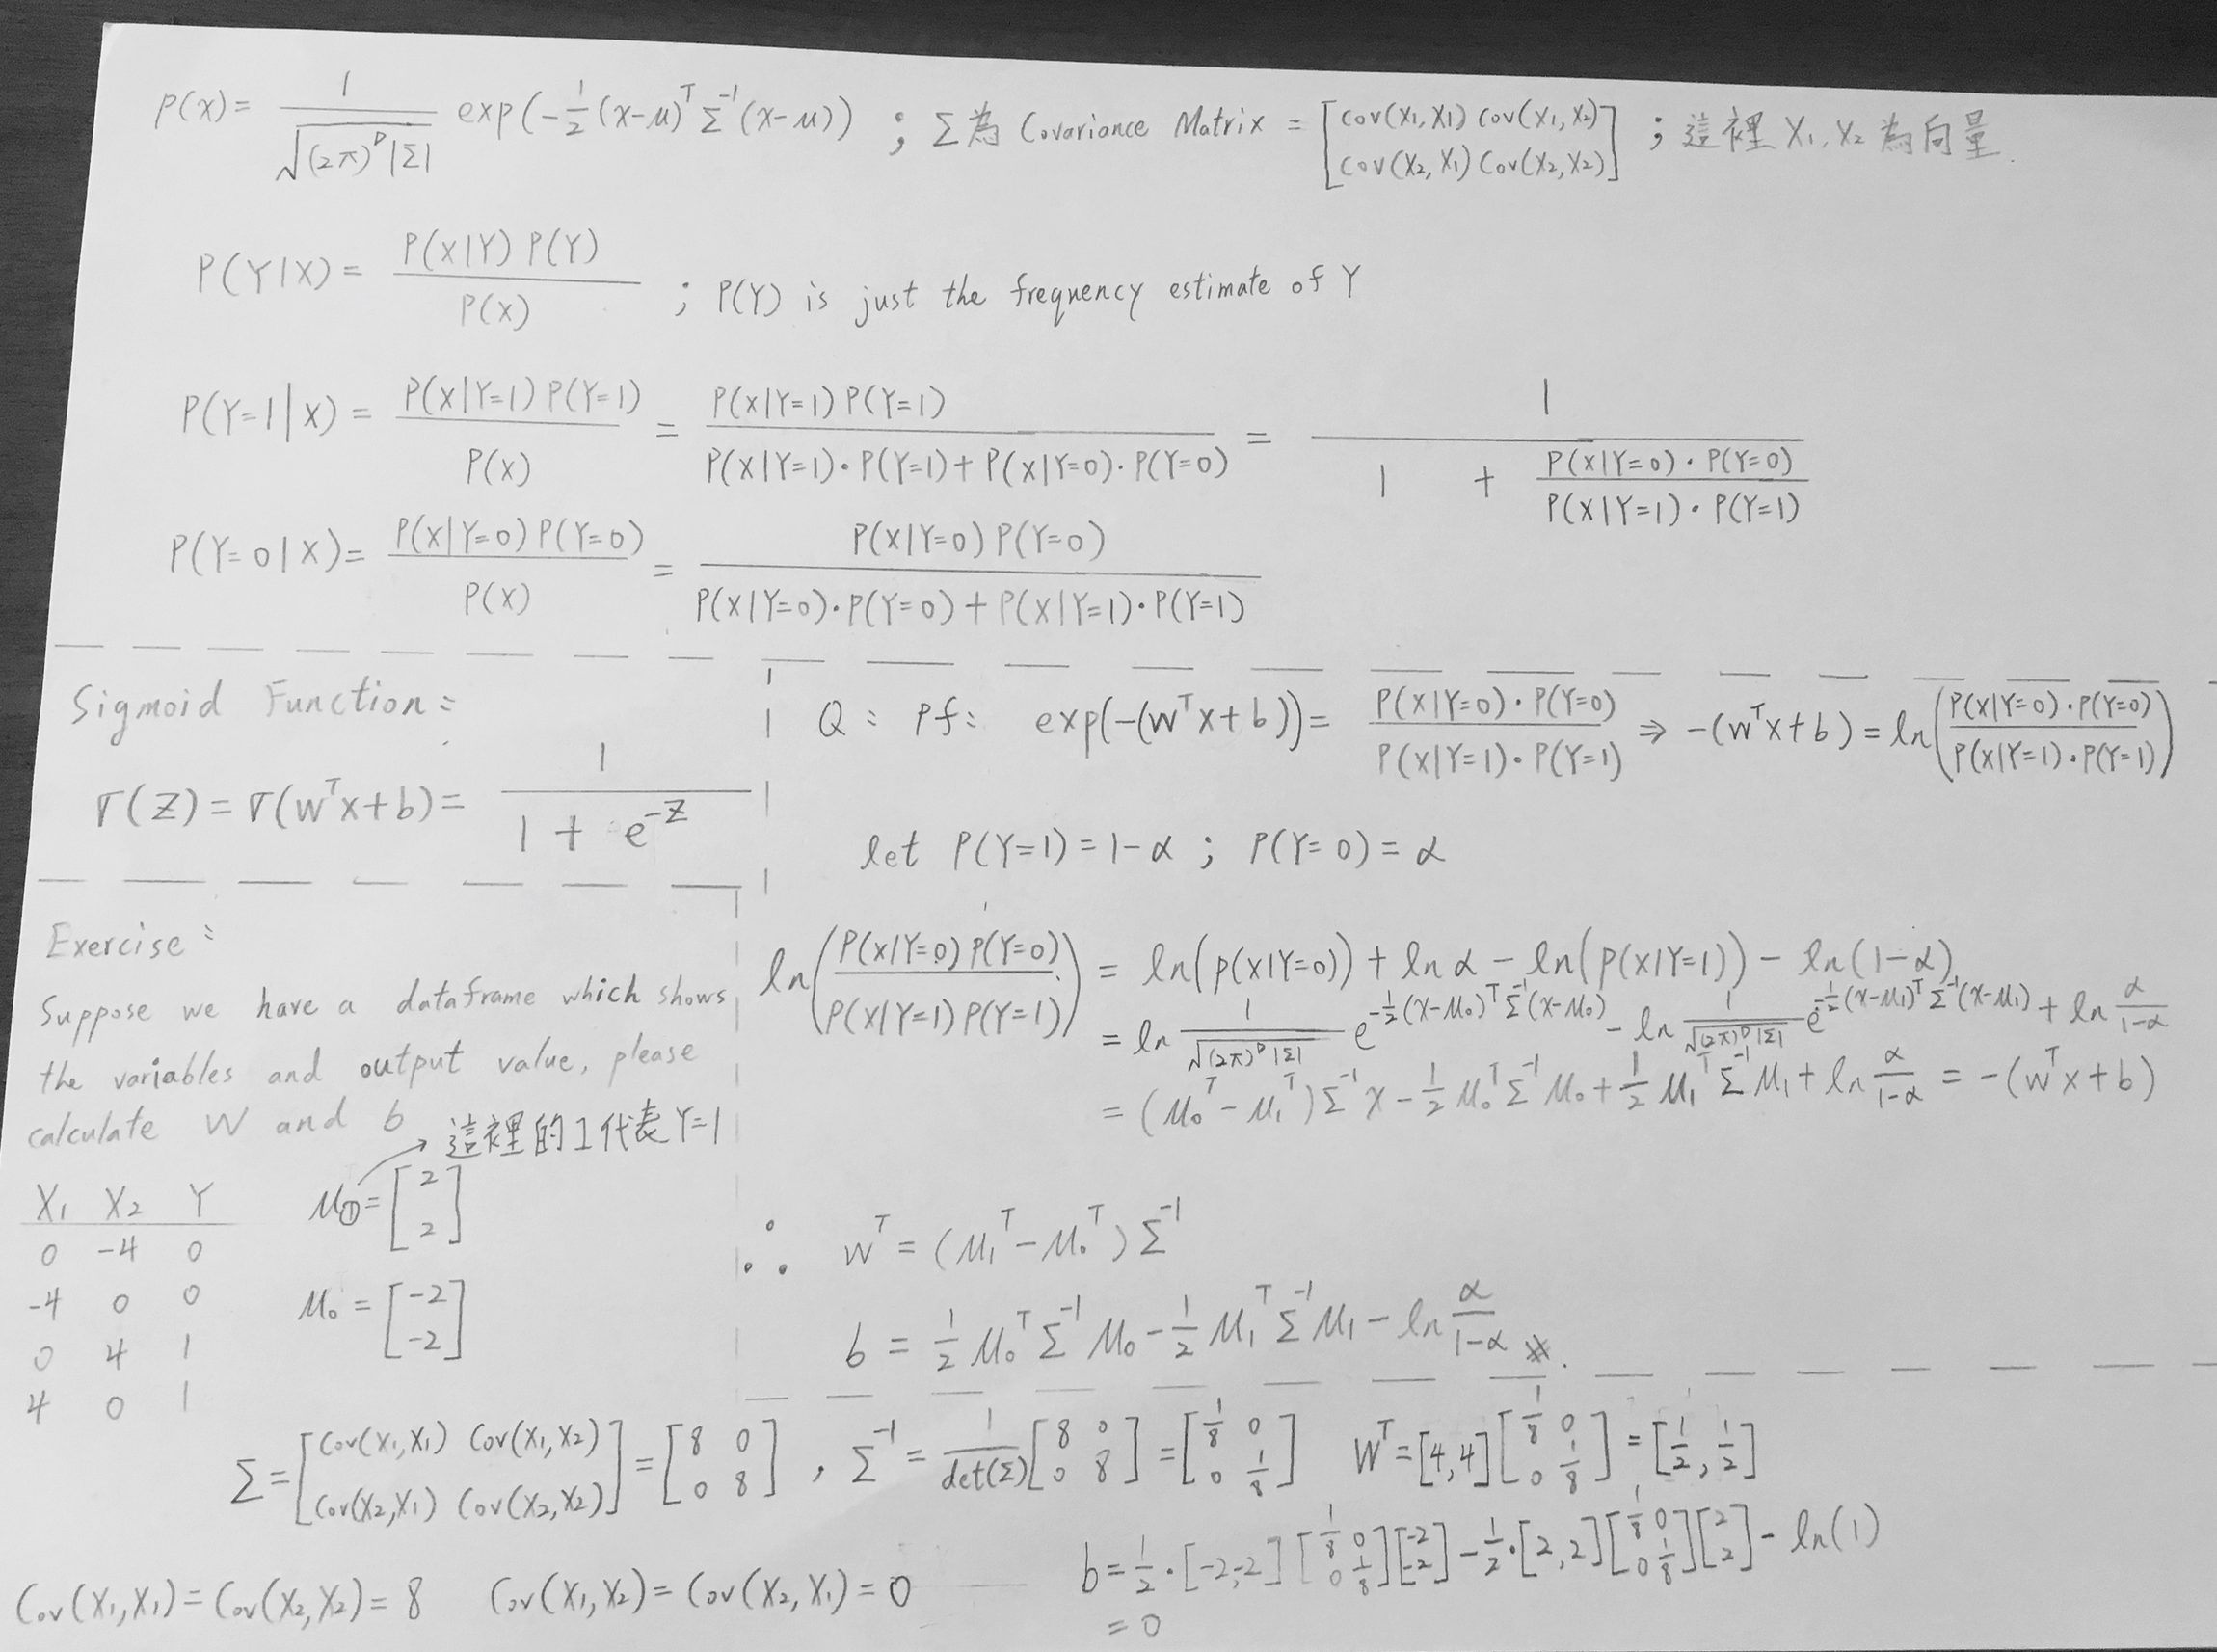 P(x) = 1 / √((2π)^D |Σ|) exp(-1/2 (x-μ)^T Σ^-1 (x-μ)) ; Σ為 Covariance Matrix = [cov(x₁,x₁) cov(x₁,x₂) ; cov(x₂,x₁) cov(x₂,x₂)] ; 這裡 X₁, X₂ 為向量.
P(Y|X) = P(X|Y) P(Y) / P(X) ; P(Y) is just the frequency estimate of Y
P(Y=1|X) = P(X|Y=1) P(Y=1) / P(X) = P(X|Y=1) P(Y=1) / P(X|Y=1)·P(Y=1) + P(X|Y=0)·P(Y=0) = 1 / 1 + P(X|Y=0)·P(Y=0) / P(X|Y=1)·P(Y=1)
P(Y=0|X) = P(X|Y=0) P(Y=0) / P(X) = P(X|Y=0) P(Y=0) / P(X|Y=0)·P(Y=0) + P(X|Y=1)·P(Y=1)
Sigmoid Function:
σ(Z) = σ(w^T x+b) = 1 / 1 + e^-Z
Q: pf: exp(-(w^T x+b)) = P(X|Y=0)·P(Y=0) / P(X|Y=1)·P(Y=1) ⇒ -(w^T x+b) = ln(P(X|Y=0)·P(Y=0) / P(X|Y=1)·P(Y=1))
let P(Y=1) = 1-α ; P(Y=0) = α
ln(P(X|Y=0) P(Y=0) / P(X|Y=1) P(Y=1)) = ln(p(x|Y=0)) + ln α - ln(p(x|Y=1)) - ln(1-α)
= ln 1/√((2π)^D |Σ|) e^(-1/2 (x-μ₀)^T Σ^-1 (x-μ₀)) - ln 1/√((2π)^D |Σ|) e^(-1/2 (x-μ₁)^T Σ^-1 (x-μ₁)) + ln α/1-α
= (μ₀^T - μ₁^T) Σ^-1 x - 1/2 μ₀^T Σ^-1 μ₀ + 1/2 μ₁^T Σ^-1 μ₁ + ln α/1-α = -(w^T x+b)
∴ w^T = (μ₁^T - μ₀^T) Σ^-1
b = 1/2 μ₀^T Σ^-1 μ₀ - 1/2 μ₁^T Σ^-1 μ₁ - ln α/1-α ※.
Exercise:
Suppose we have a dataframe which shows
the variables and output value, please
calculate W and b
這裡的1代表Y=1
X₁ X₂ Y
0 -4 0
-4 0 0
0 4 1
4 0 1
μ① = [2 ; 2]
μ₀ = [-2 ; -2]
Σ = [Cov(X₁,X₁) Cov(X₁,X₂) ; Cov(X₂,X₁) Cov(X₂,X₂)] = [8 0 ; 0 8] , Σ^-1 = 1/det(Σ) [8 0 ; 0 8] = [1/8 0 ; 0 1/8] W^T = [4,4] [1/8 0 ; 0 1/8] = [1/2, 1/2]
Cov(X₁,X₁) = Cov(X₂,X₂) = 8 Cov(X₁,X₂) = Cov(X₂,X₁) = 0
b = 1/2·[-2,-2] [1/8 0 ; 0 1/8] [-2 ; -2] - 1/2·[2,2] [1/8 0 ; 0 1/8] [2 ; 2] - ln(1)
= 0